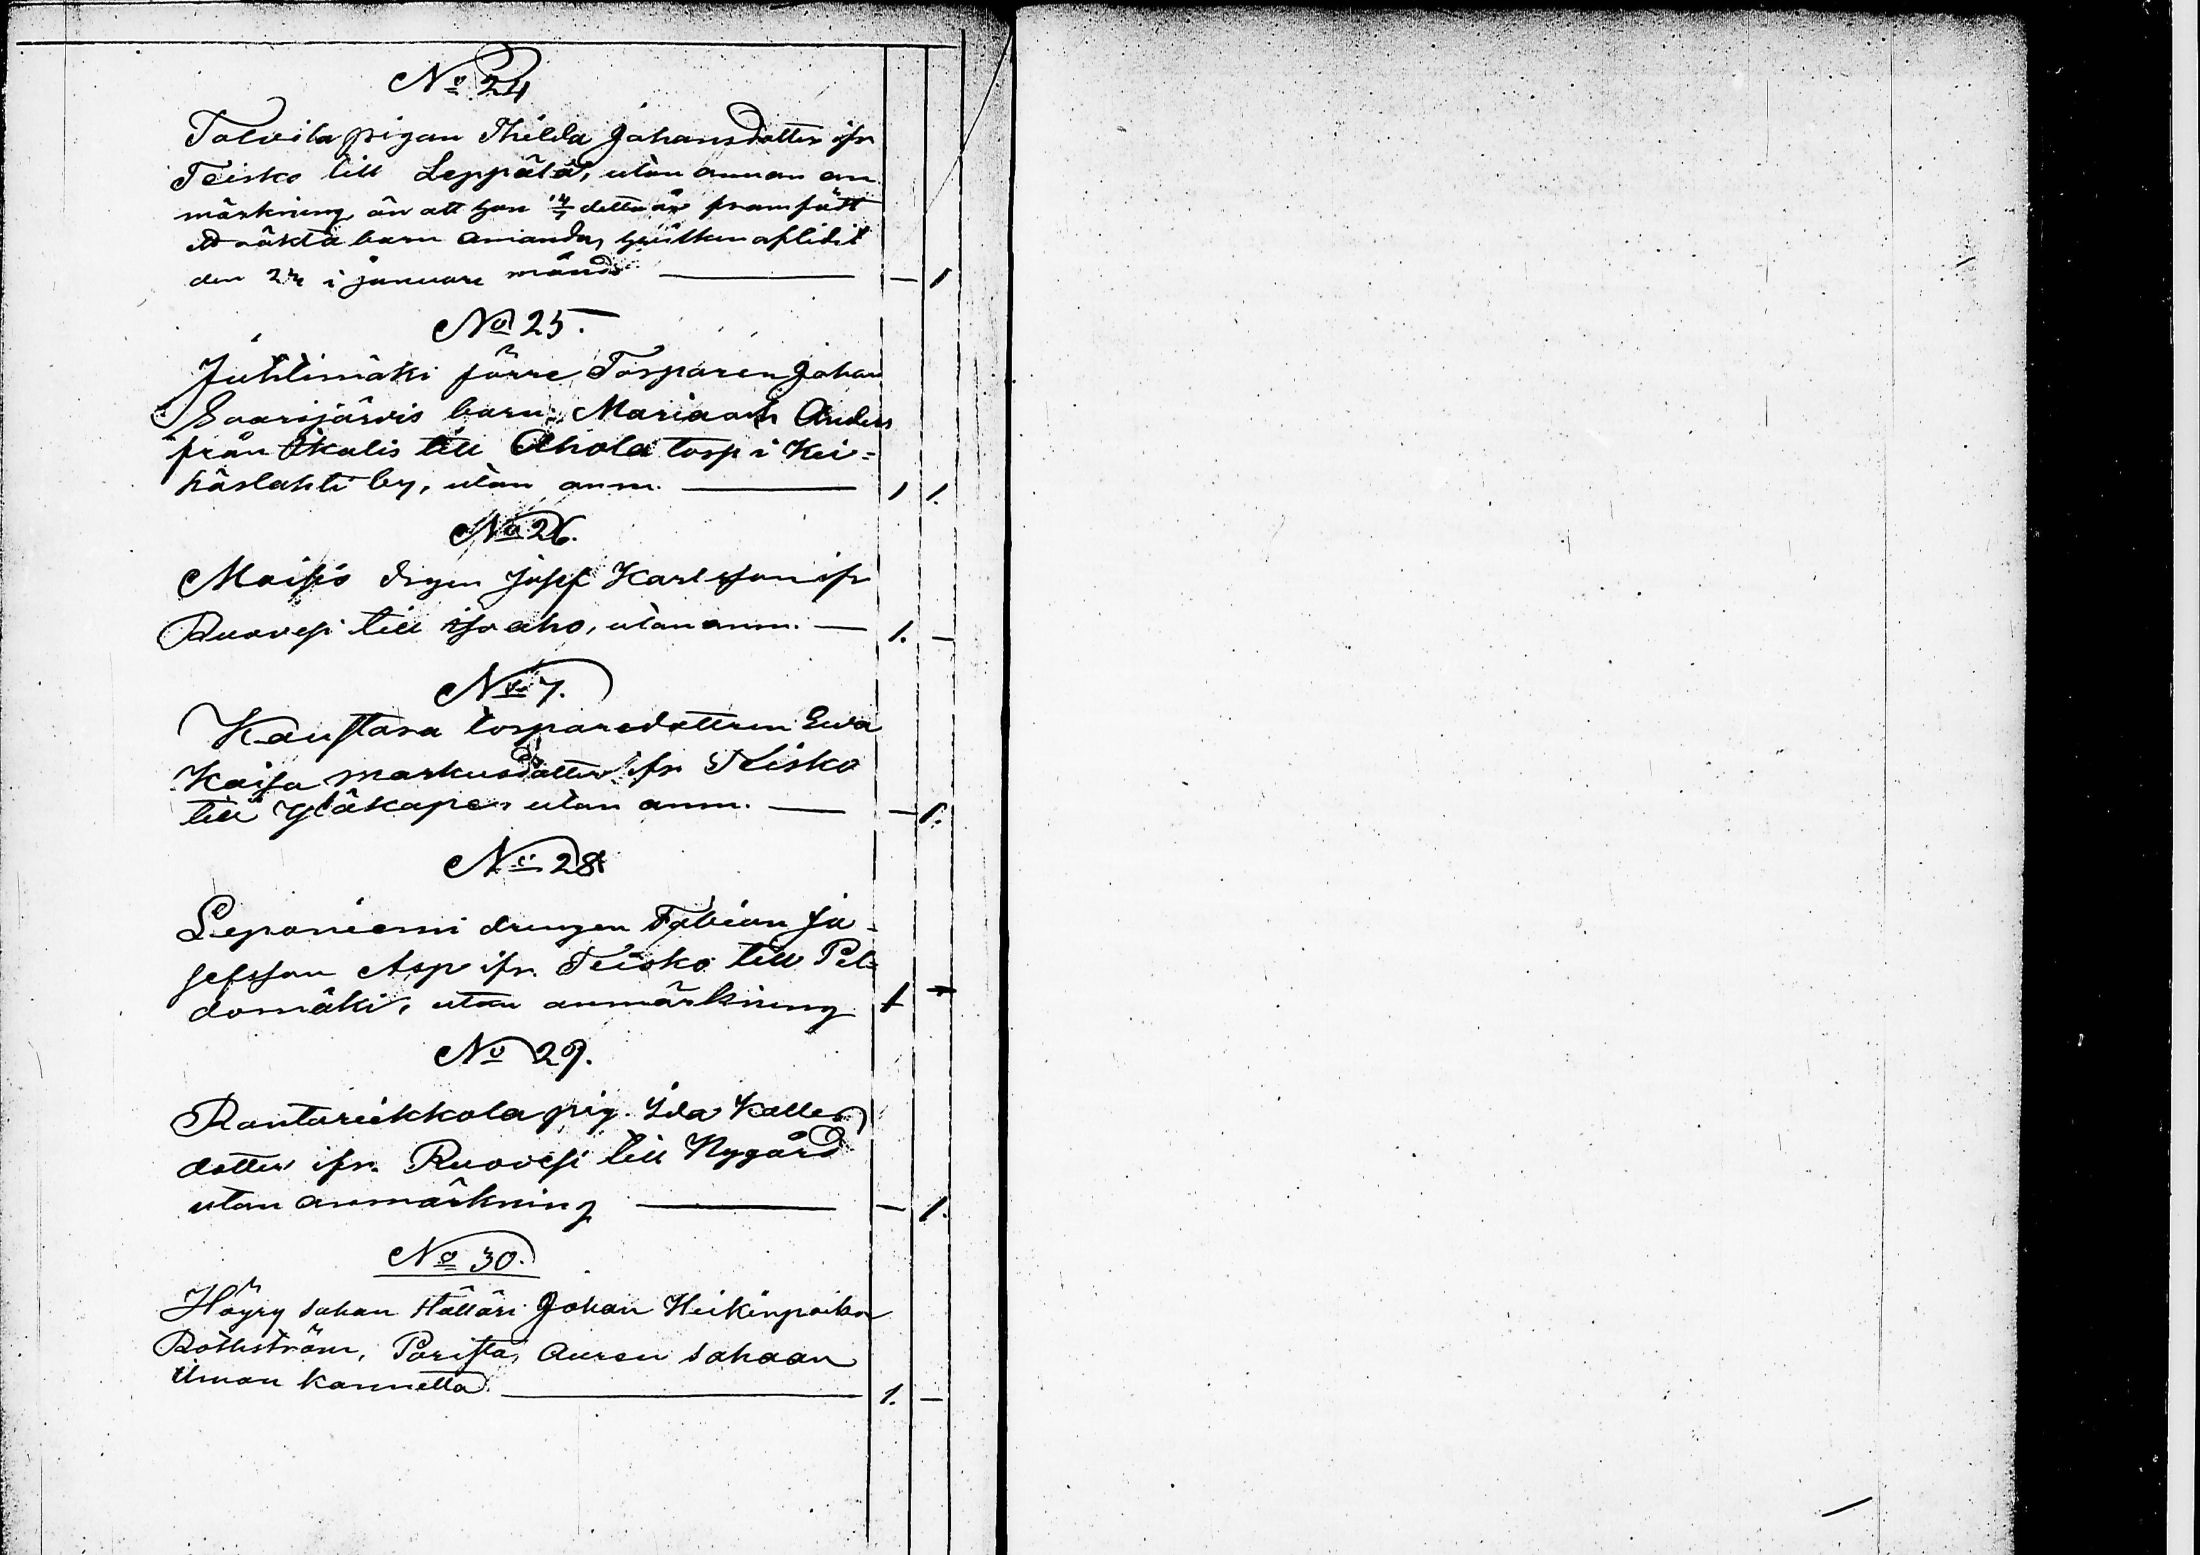 No 24
Talvila pigan Thilda Johansdotter ifr
Teisko till Leppälä, utan annan an
märkning än att hon detta år framfödt
oäkta barn Amanda, hvilken aflidit
den i januari månad — 1
No 25.
Juhtimäki förre Torparen Johan
Saarijärvis barn Maria och Anders
från Ikalis till Ahola torp i Kei=
häslahti by, utan anm. 1 1.
No 26.
Moisio drgen Josef Karlsson ifr
Ruovesi till Isoaho, utan anm. — 1. —
No 7.
Kaustara torparedottren Eva
Kaisa Markusdotter ifr Teisko
till Yläkapee utan anm. — — 1.
No 28
Leponiemi drengen Fabian Jo-
sefsson Asp ifr. Teisko till Pel=
domäki, utan anmärkning 1 —
No 29.
Rantariekkola pig. Ida Kalle
dotter ifr. Ruovesi till Nygård
utan anmärkning — — 1.
No 30.
Höyry sahan ställäri Johan Heikinpoika
Rothström, Porista, Auren sahaan
ilman kannetta. — 1. —